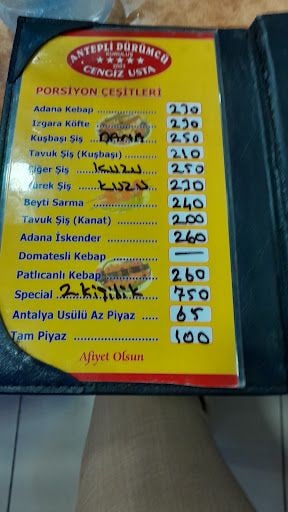 ANTEPLİ DÜRÜMCÜ
KURULUŞ
CENGİZ USTA
PORSİYON ÇEŞİTLERİ
Adana Kebap 230
Izgara Köfte 230
Kuşbaşı Şiş DANA 250
Tavuk Şiş (Kuşbaşı) 210
Ciğer Şiş KUZU 250
Yürek Şiş KUZU 230
Beyti Sarma 240
Tavuk Şiş (Kanat) 200
Adana İskender 260
Domatesli Kebap —
Patlıcanlı Kebap 260
Special 2 kişilik 750
Antalya Usülü Az Piyaz 65
Tam Piyaz 100
Afiyet Olsun